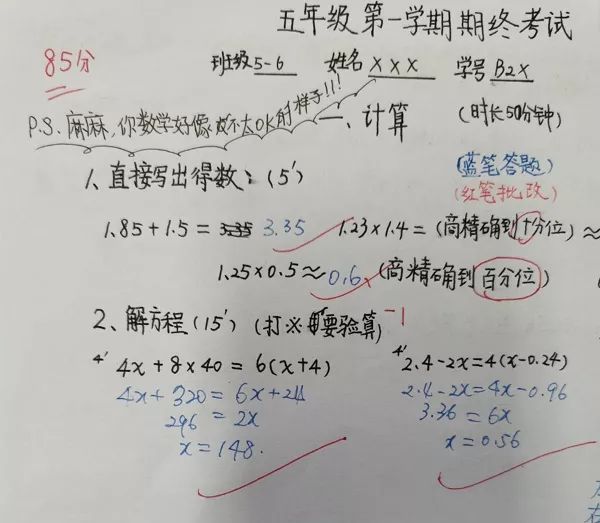 五年级第一学期期终考试
85分
班级5-6 姓名XXX 学号B2X
P.S.麻麻,你数学好像 不太OK的样子!!!
一、计算 (时长50分钟)
(蓝笔答题)
(红笔批改)
1、直接写出得数:(5')
1.85+1.5= 3.35 1.23×1.4=(商精确到十分位)≈
1.25×0.5≈0.6 (商精确到百分位)
2、解方程(15')(打※ 要验算) -1
4' 4x+8×40=6(x+4) 4' 2.4-2x=4(x-0.24)
4x+320=6x+24 2.4-2x=4x-0.96
296=2x 3.36=6x
x=148. x=0.56